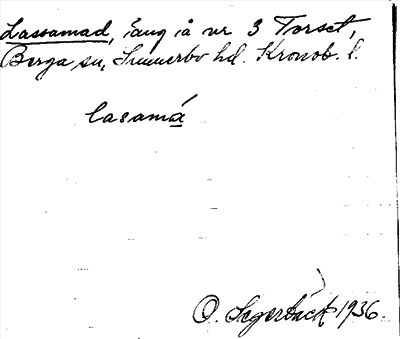 Lassamad, äng å nr 3 Torset,
Berga sn, Sunnerbo hd. Kronob. l.
lasamá
O. Segerbäck 1936.